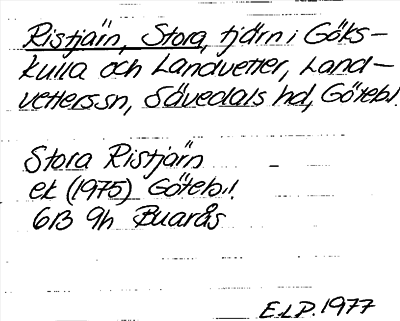 Ristjärn, Stora, tjärn i Göks-
kulla och Landvetter, Land-
vetterssn, Sävedals hd, Götebl.
Stora Ristjärn
ek (1975) Götebl!
6B 9h Buarås
E.L.P. 1977